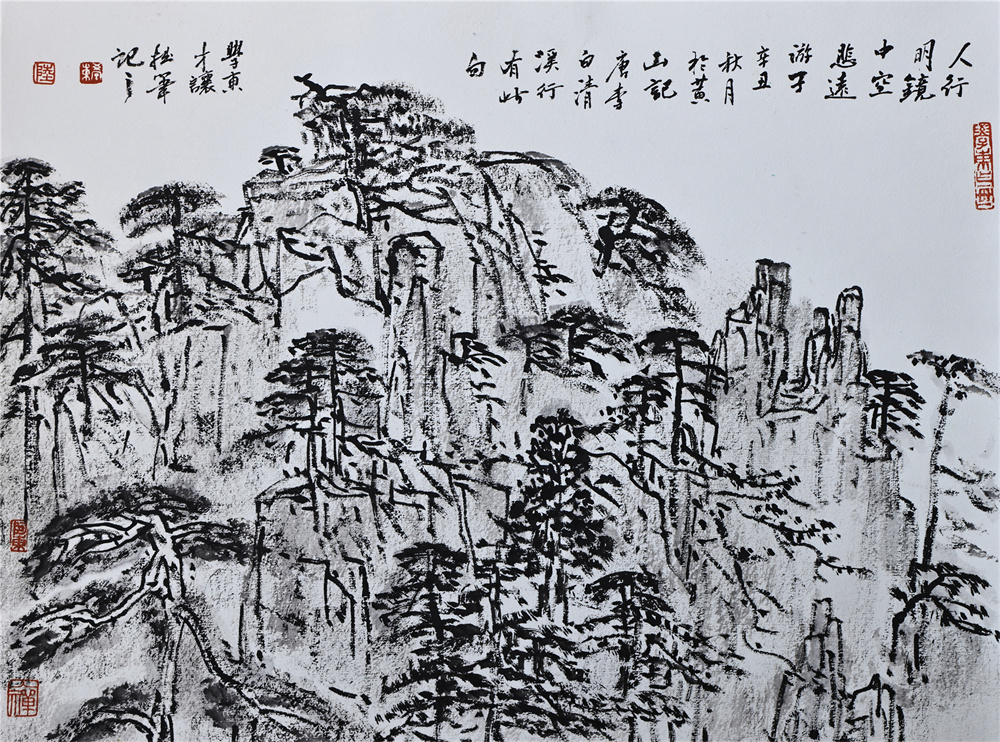 人行
明鏡
中空
悲遠
游子
辛丑
秋月
於黃
山記
唐李
白清
溪行
有此
句
學東
才讓
拙筆
記之